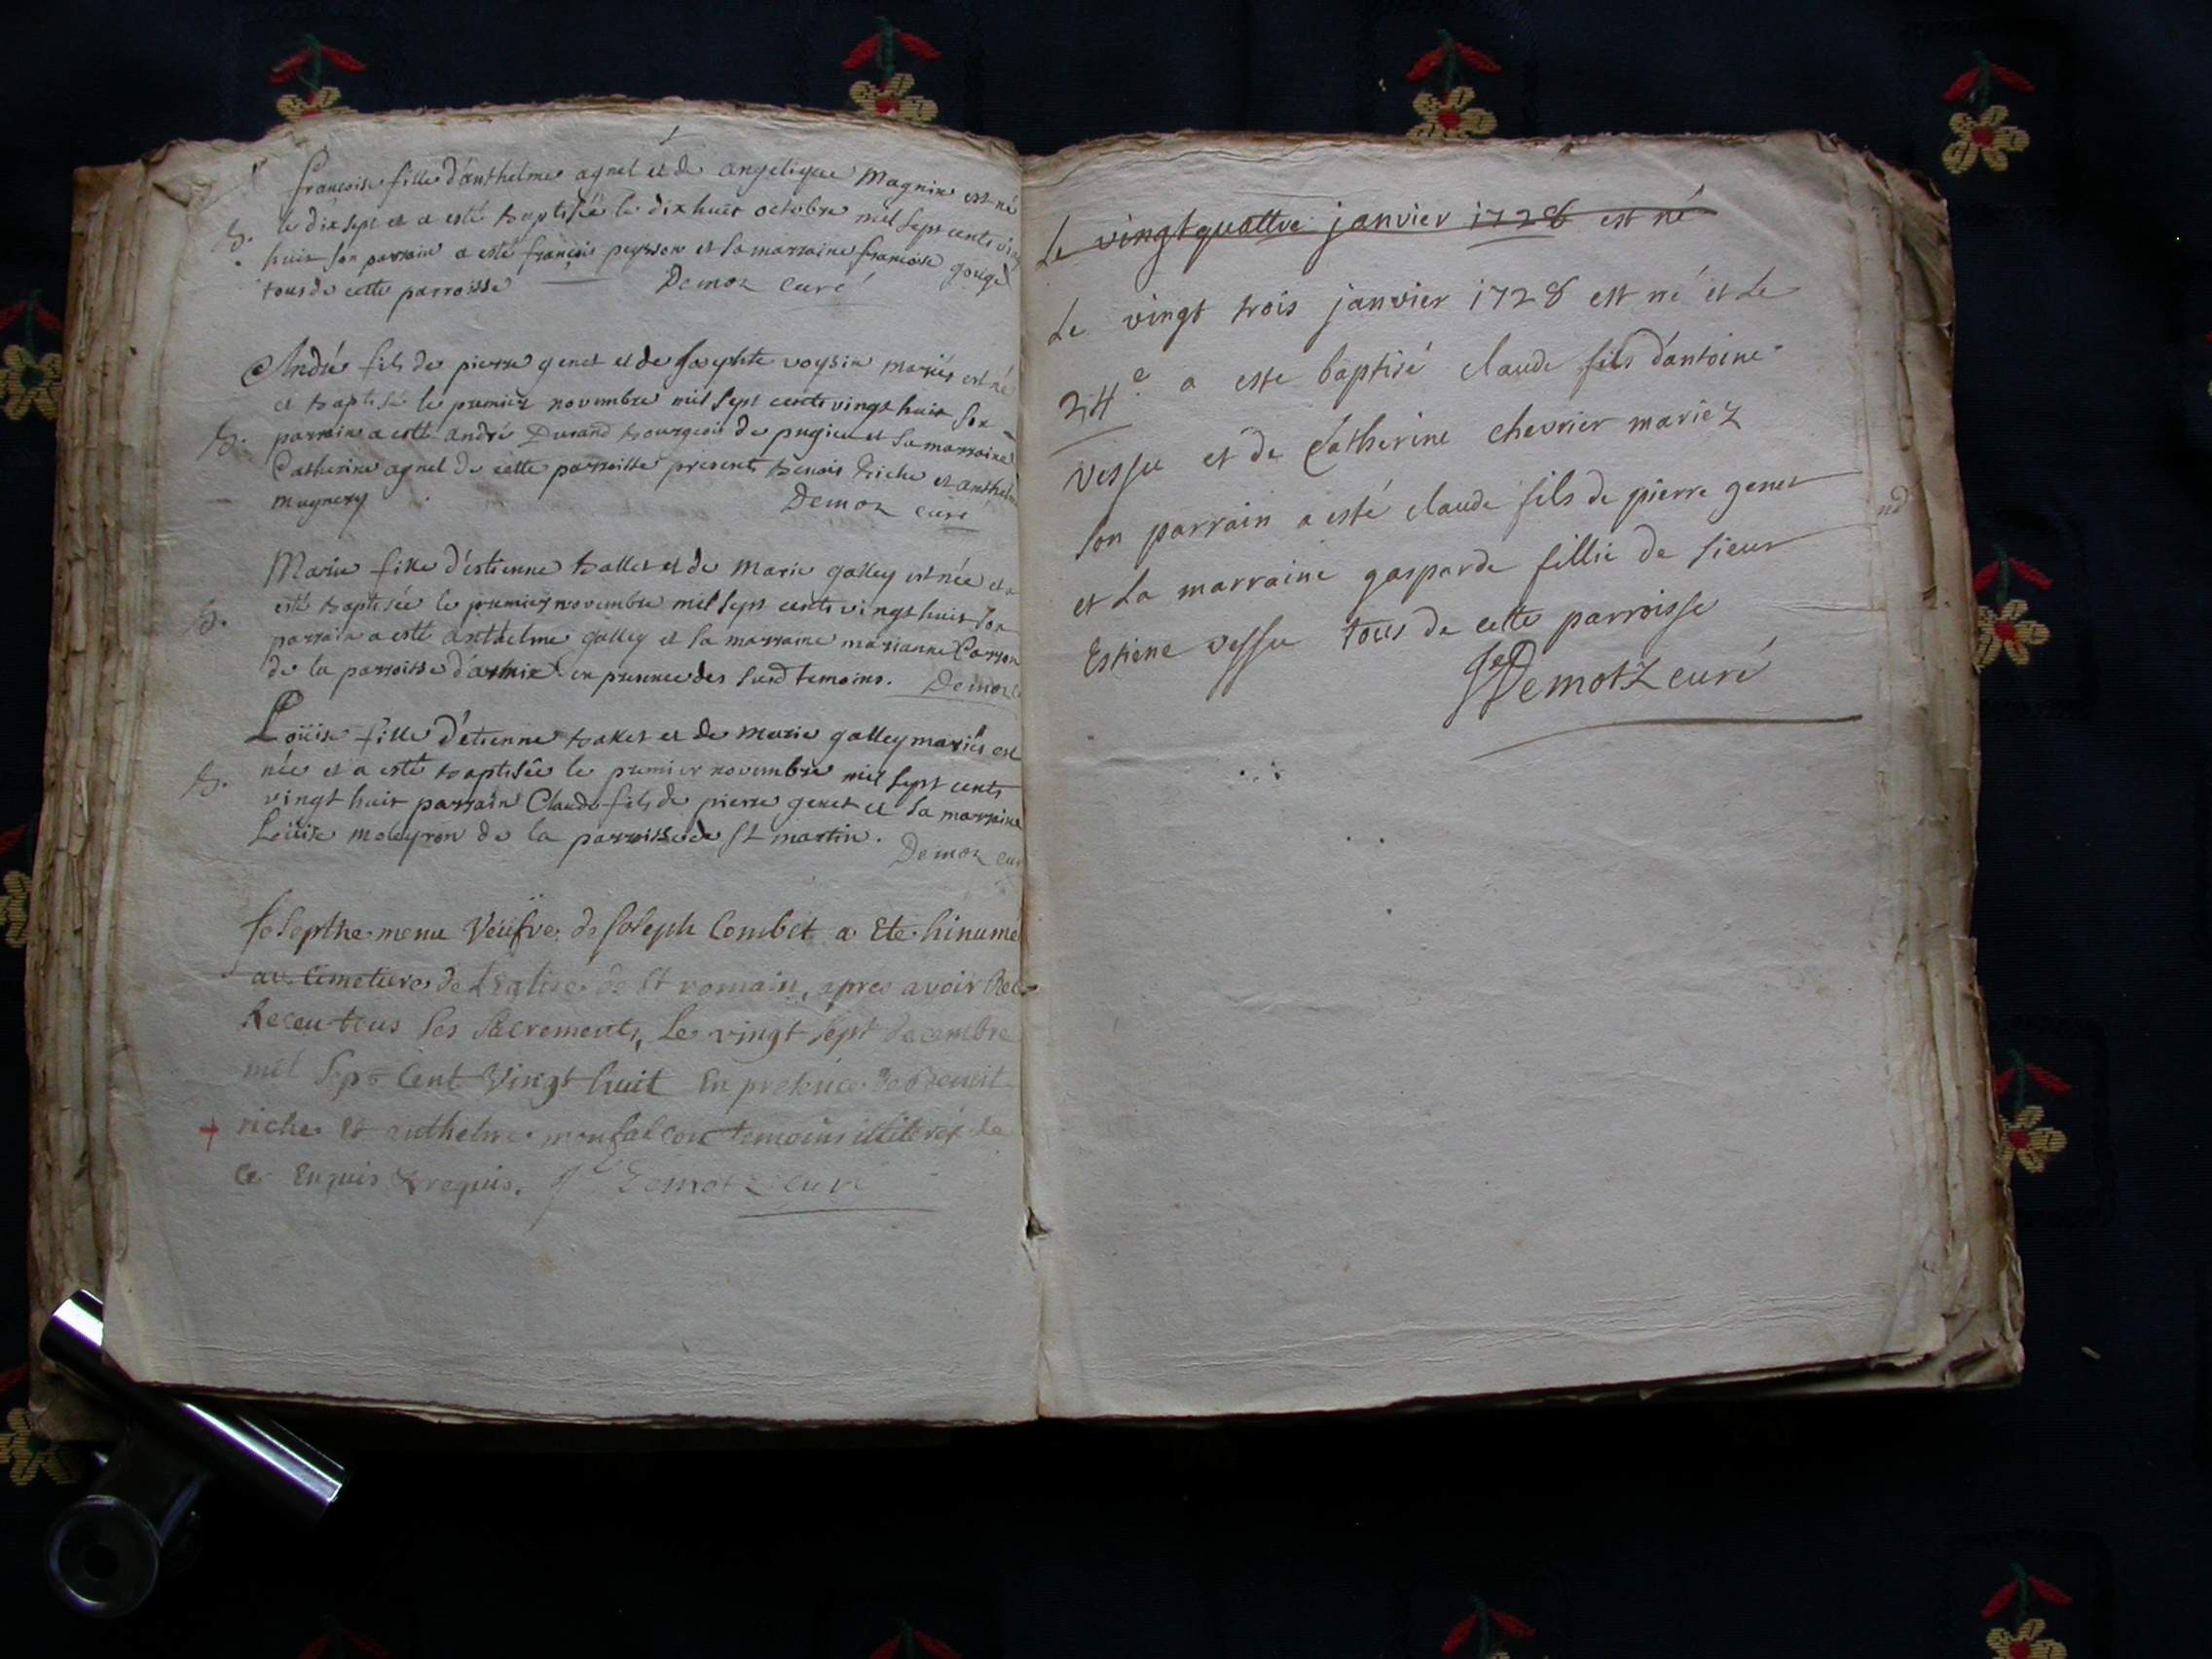 françoise fille d'anthelme agnel et de angelique Magnin est né
b. le dix sept et a esté baptisée le dix huit octobre mil sept cents ving
huit son parrain a esté françois peysson et sa marraine francoise gouge
tous de cette parroisse Demoz curé
André fils de pierre genet et de Josephte voysin mariés est né
et baptisé le premier novembre mil sept cents vingt huit son
b. parrain a esté andré Durand bourgeois de pugieu et sa marraine
Catherine agnel de cette parroisse presents benoit Riche et anthelme
mugnery Demoz curé
Marie fille d'estienne ballet et de Marie galley est née et a
b. esté baptisée le premier novembre mil sept cents vingt huit son
parrain a esté anthelme galley et sa marraine marianne Carron
de la parroisse d'armix en presence des susd temoins. Demoz
Loüise fille d'étienne ballet et de marie galley mariés est
b. née et a esté baptisée le premier novembre mil sept cents
vingt huit parrain Claude fils de pierre genet et sa marraine
Loüise moleyron de la parroisse de St martin. Demoz cur
Josepthe menu Veufve de Joseph Combet a Ete hinumé
au Cimetiere de L'Eglise de St romain, apres avoir Rec
Receu tous ses sacrements, Le vingt sept decembre
mil sept Cent Vingt huit En presence de Benoit
+ riche Et anthelme monfalcon temoins illiterés de
Ce Enquis & requis. Demotz curé
Le vingt quattre janvier 1728 est né
Le vingt trois janvier 1728 est né et Le
24e a esté baptisé claude fils d'antoine
vessu et de Catherine chevrier mariez
son parrain a esté claude fils de pierre genet
et La marraine gasparde fillie de sieur
Estiene vessu tous de cette parroisse
Demotz curé
nd